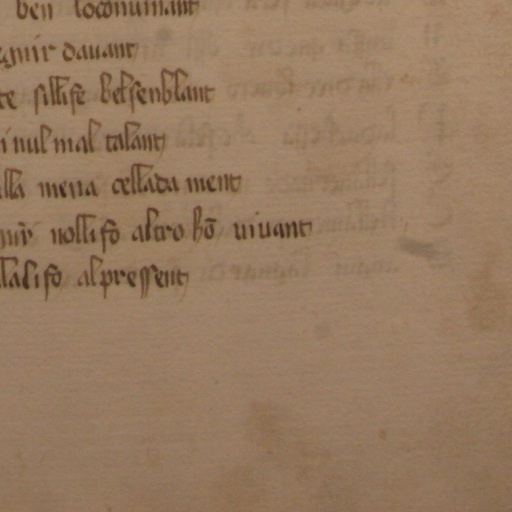 ben loconuinant
gnir dauant
te sillife belsenblant
i nul mal talant
lla mena cellada ment
nollifo altro hō uiuant
lalifo alpressent